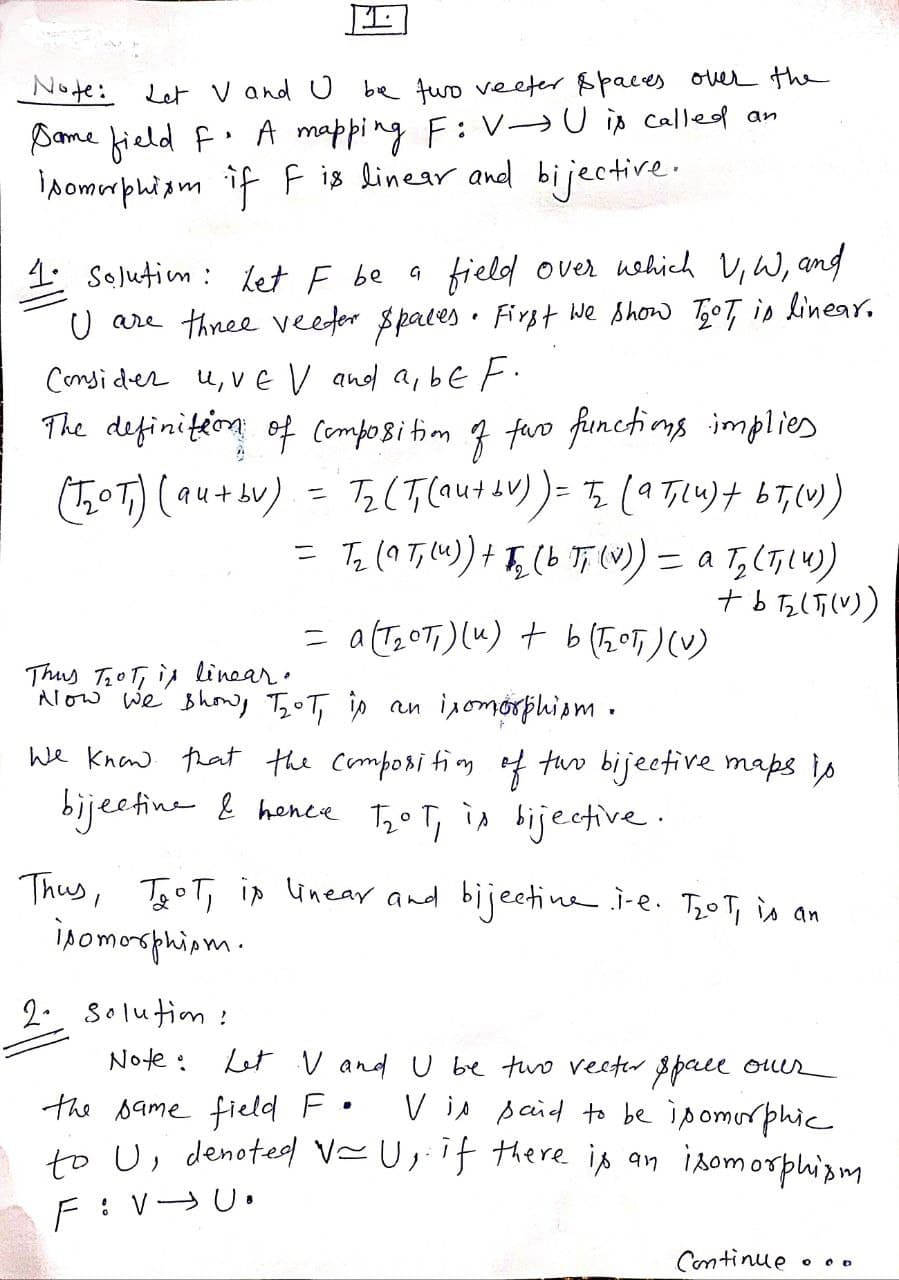 1.
Note: Let V and U be two vector spaces over the
Same field F. A mapping F: V→U is called an
isomorphism if F is linear and bijective.
1. Solution: Let F be a field over which V, W, and
U are three vector spaces. First we show T₂∘T₁ is linear.
Consider u, v ∈ V and a, b ∈ F.
The definition of composition of two functions implies
(T₂∘T₁)(au+bv) = T₂(T₁(au+bv)) = T₂(aT₁(u)+bT₁(v))
= T₂(aT₁(u)) + T₂(bT₁(v)) = aT₂(T₁(u))
+ bT₂(T₁(v))
= a(T₂∘T₁)(u) + b(T₂∘T₁)(v)
Thus T₂∘T₁ is linear.
Now we show, T₂∘T₁ is an isomorphism.
We know that the composition of two bijective maps is
bijective & hence T₂∘T₁ is bijective.
Thus, T₂∘T₁ is linear and bijective i.e. T₂∘T₁ is an
isomorphism.
2. Solution:
Note: Let V and U be two vector space over
the same field F. V is said to be isomorphic
to U, denoted V≃U, if there is an isomorphism
F: V→U.
Continue ...